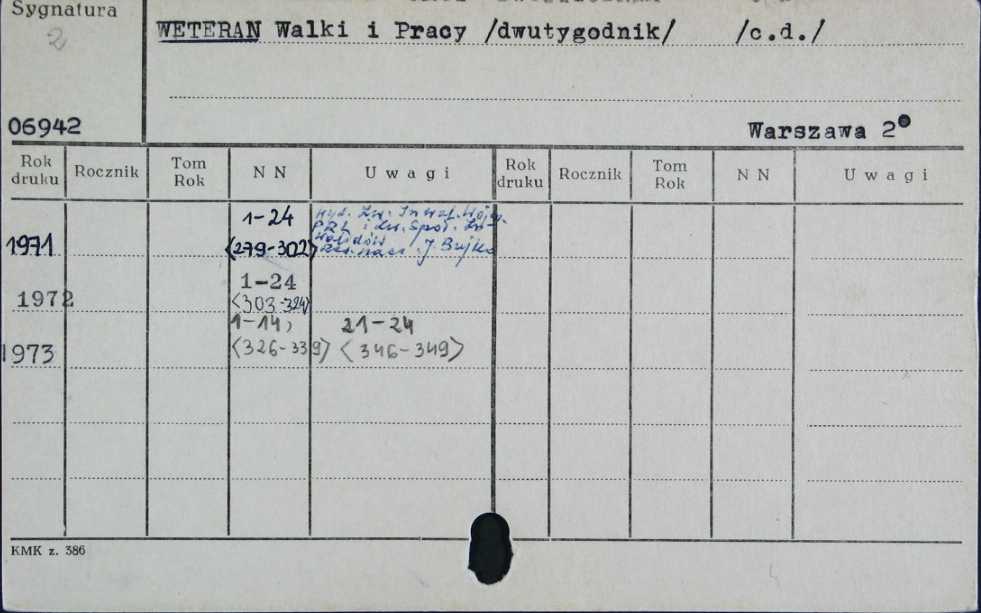 Sygnatura
2
WETERAN Walki i Pracy /dwutygodnik/ /c.d./
06942
Warszawa 2°
Rok druku Rocznik Tom Rok N N U w a g i Rok druku Rocznik Tom Rok N N U w a g i
1971 1-24 <279-302> Wyd. Zw. Inwal. Wojen.
PRL i Zw. Spół. In-
walidów
Red. nacz. J. Bujko
1972 1-24 <303-324>
1973 1-14, 21-24
<326-339> <346-349>
KMK z. 386